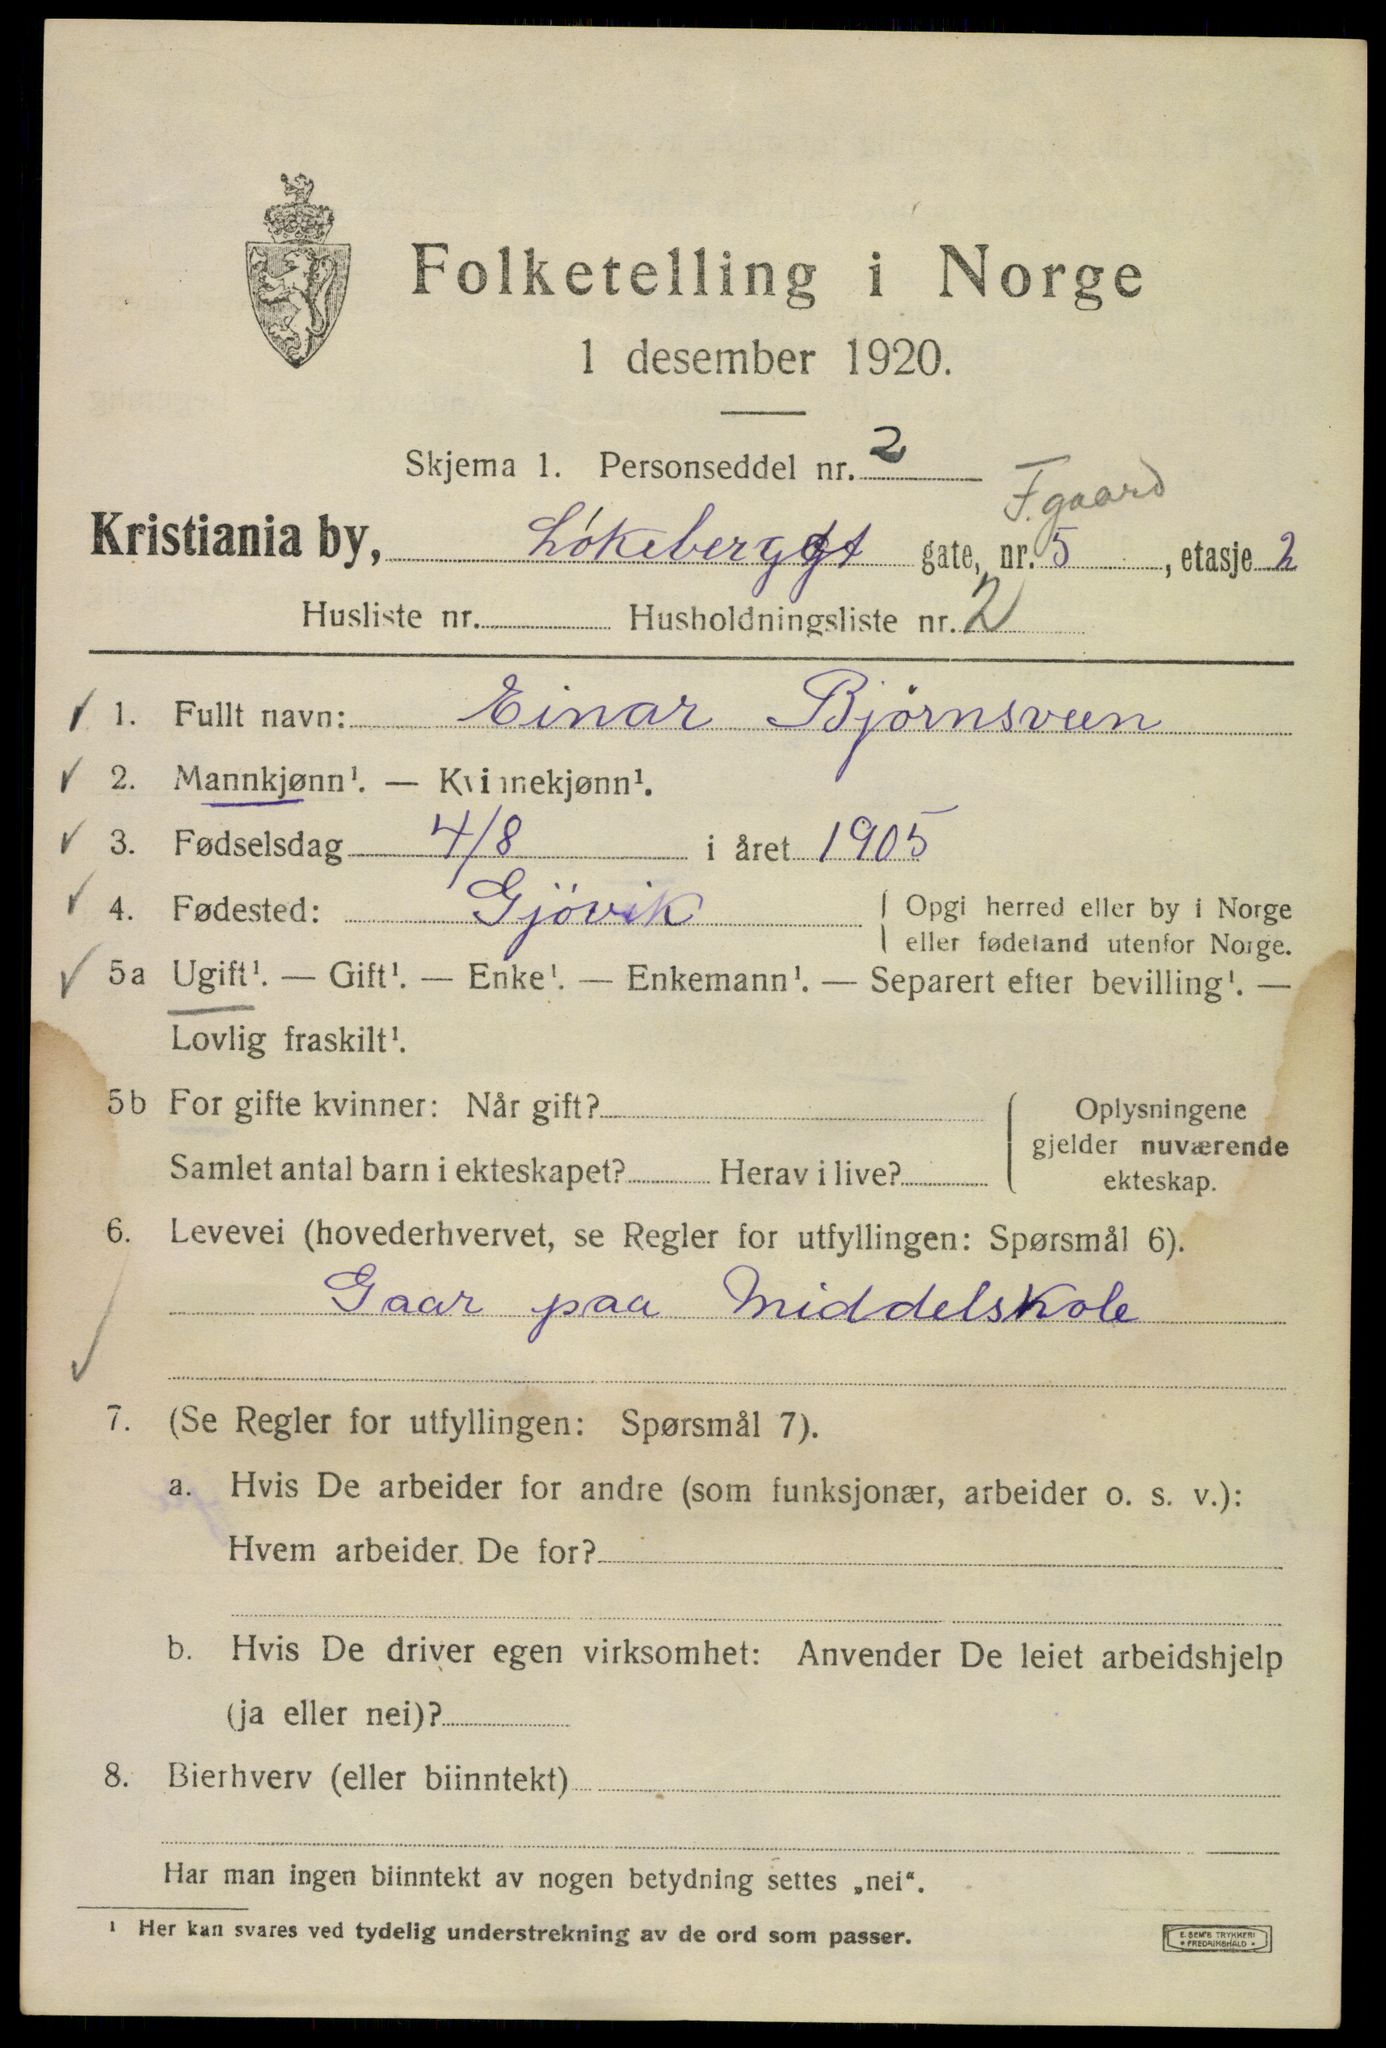 Folketelling i Norge
1 desember 1920.
Skjema 1. Personseddel nr. 2
F.gaard
Kristiania by, Lökeberggt gate, nr. 5, etasje 2
Husliste nr. Husholdningsliste nr. 2
1. Fullt navn: Einar Bjørnsveen
2. Mannkjønn¹. — Kvinnekjønn¹.
3. Fødselsdag 4/8 i året 1905
4. Fødested: Gjövik { Opgi herred eller by i Norge
eller fødeland utenfor Norge.
5a Ugift¹. — Gift¹. — Enke¹. — Enkemann¹. — Separert efter bevilling¹. —
Lovlig fraskilt¹.
5b For gifte kvinner: Når gift?
Samlet antal barn i ekteskapet? Herav i live?
{ Oplysningene
gjelder nuværende
ekteskap.
6. Levevei (hovederhvervet, se Regler for utfyllingen: Spørsmål 6).
Gaar paa Middelskole
7. (Se Regler for utfyllingen: Spørsmål 7).
a. Hvis De arbeider for andre (som funksjonær, arbeider o. s. v.):
Hvem arbeider De for?
b. Hvis De driver egen virksomhet: Anvender De leiet arbeidshjelp
(ja eller nei)?
8. Bierhverv (eller biinntekt)
Har man ingen biinntekt av nogen betydning settes „nei“.
¹ Her kan svares ved tydelig understrekning av de ord som passer.
E. SEM'S TRYKKERI
FREDRIKSHALD